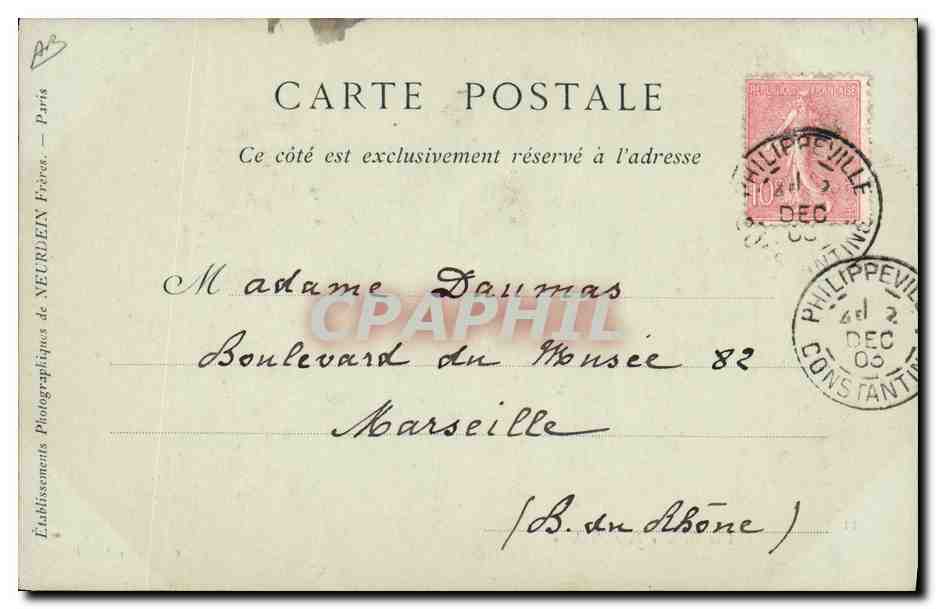 CARTE POSTALE
Ce côté est exclusivement réservé à l'adresse
RÉPUBLIQUE FRANÇAISE
10
PHILIPPEVILLE
2
DEC
03
Madame Daumas
Boulevard du Musée 82
Marseille
(B. du Rhône)
PHILIPPEVILL
2
DEC
03
CONSTANTIN
CPAPHIL
Établissements Photographiques de NEURDEIN Frères. — Paris